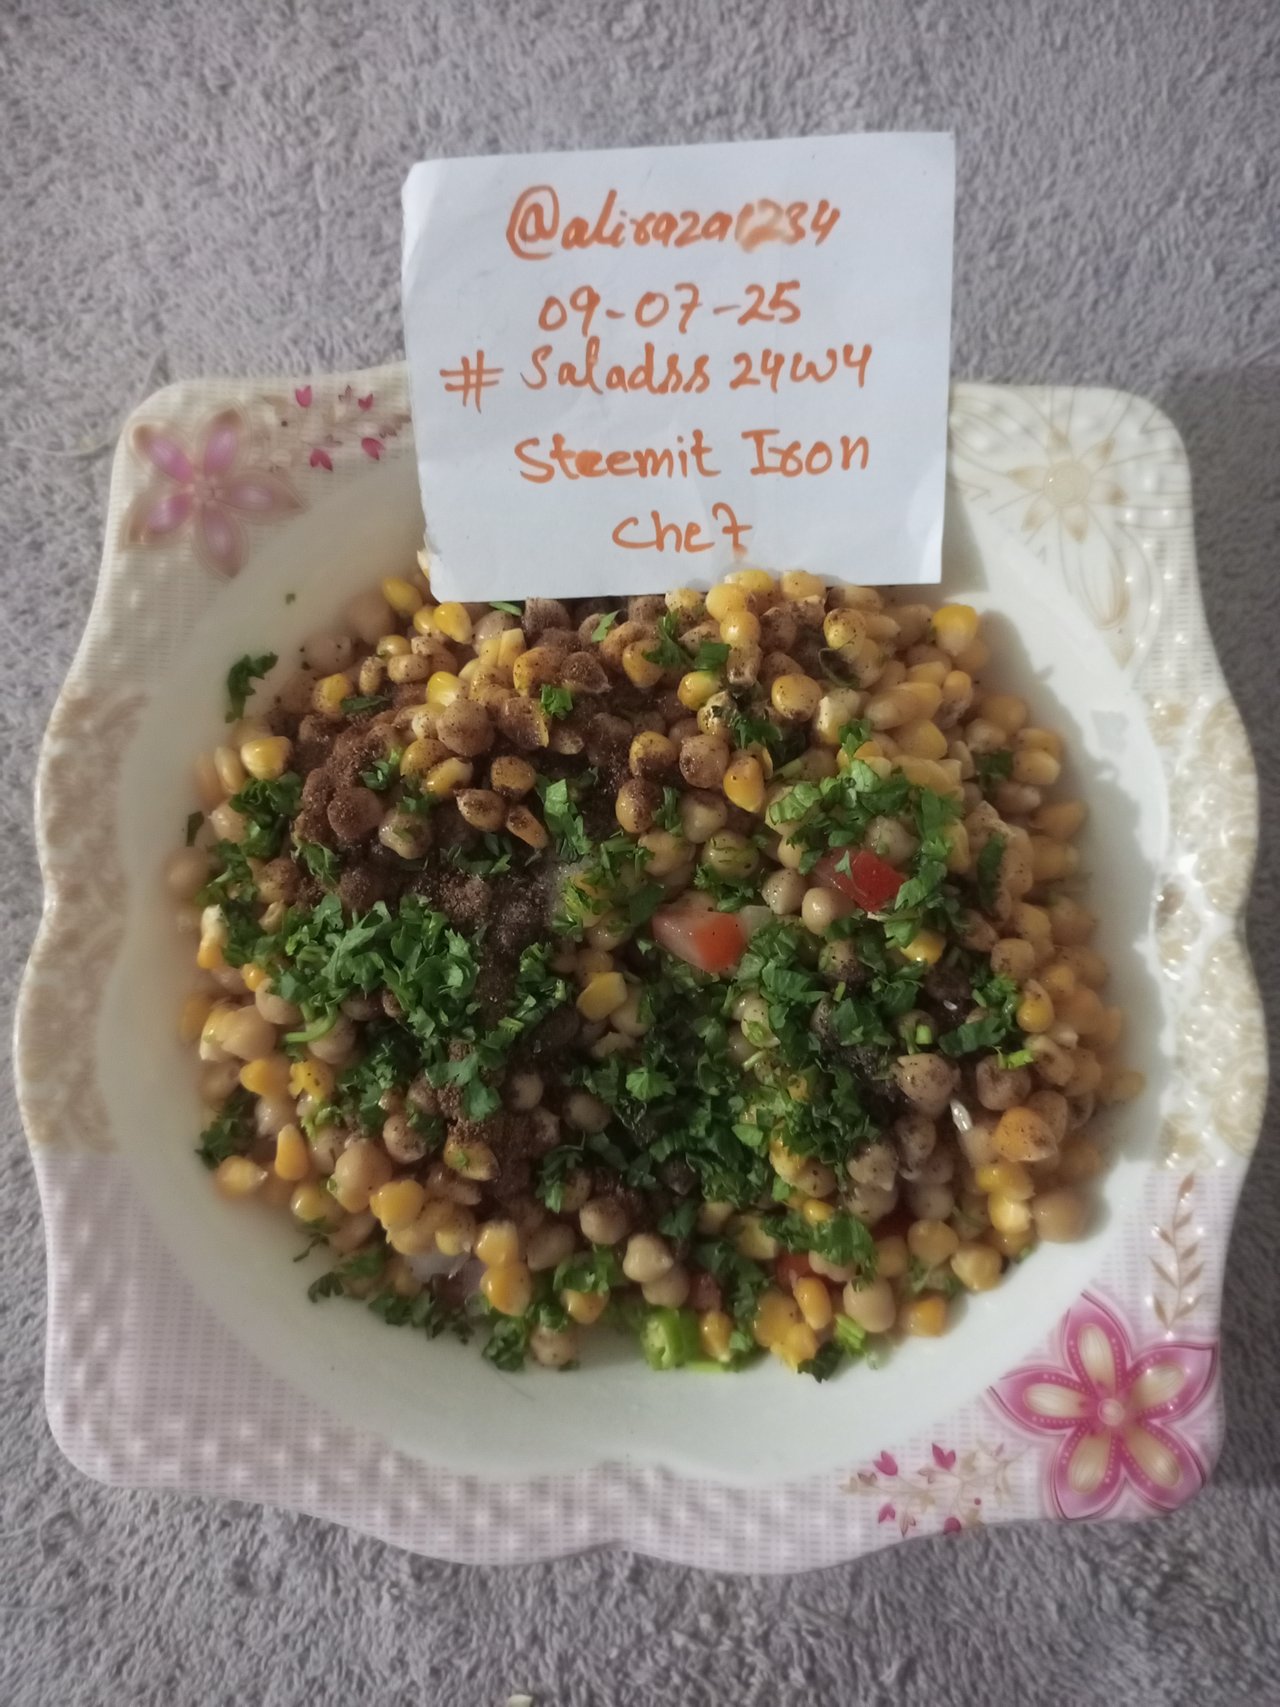 @aliraza1234
09-07-25
# Saladss 24w4
Steemit Iron
Chef